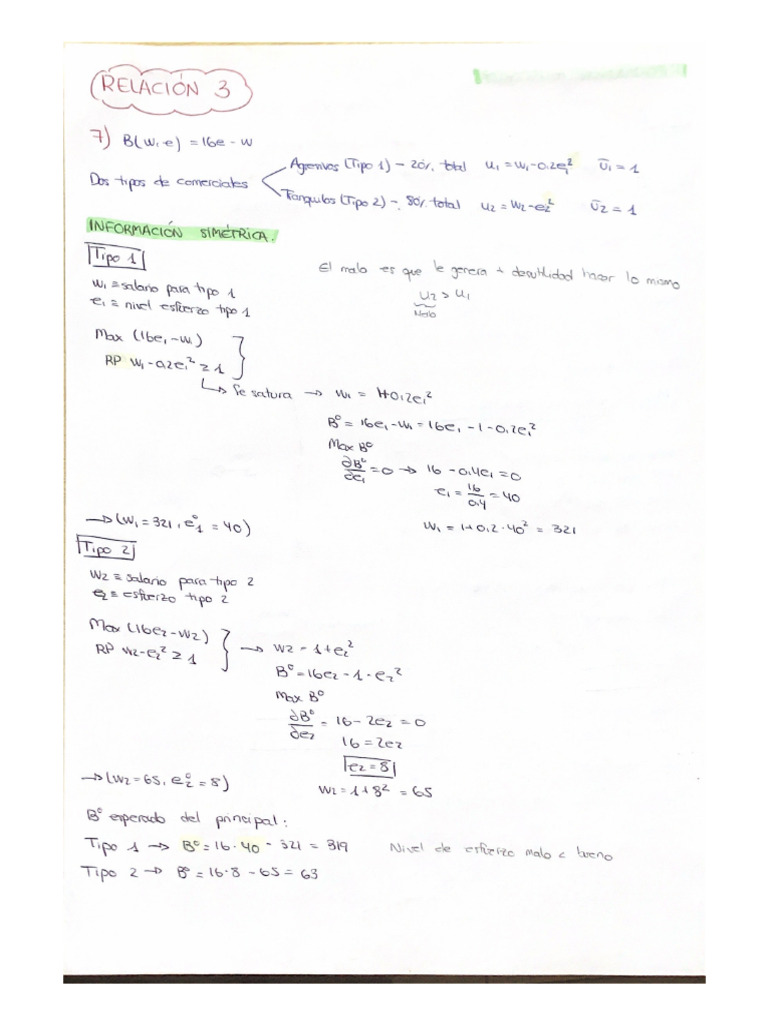 RELACIÓN 3
7) B(w,e) = 16e - w
Dos tipos de comerciales
Agresivos (Tipo 1) - 20% total u₁ = w₁ - 0.2e₁² ū₁ = 1
Tranquilos (Tipo 2) - 80% total u₂ = w₂ - e₂² ū₂ = 1
INFORMACIÓN SIMÉTRICA.
Tipo 1
El malo es que le genera + desutilidad hacer lo mismo
u₂ > u₁
Malo
w₁ ≡ salario para tipo 1
e₁ ≡ nivel esfuerzo tipo 1
Max (16e₁ - w₁)
RP w₁ - 0.2e₁² ≥ 1
↳ Se satura → w₁ = 1+0,2e₁²
Bº = 16e₁ - w₁ = 16e₁ - 1 - 0.2e₁²
Max Bº
∂Bº/∂e₁ = 0 → 16 - 0,4e₁ = 0
e₁ = 16/0.4 = 40
→ (w₁ = 321, e₁º = 40)
w₁ = 1 + 0.2 · 40² = 321
Tipo 2
w₂ ≡ salario para tipo 2
e₂ ≡ esfuerzo tipo 2
Max (16e₂ - w₂)
RP w₂ - e₂² ≥ 1
→ w₂ = 1 + e₂²
Bº = 16e₂ - 1 - e₂²
Max Bº
∂Bº/∂e₂ = 16 - 2e₂ = 0
16 = 2e₂
e₂ = 8
→ (w₂ = 65, e₂º = 8)
w₂ = 1 + 8² = 65
Bº esperado del principal:
Tipo 1 → Bº = 16 · 40 - 321 = 319
Nivel de esfuerzo malo < bueno
Tipo 2 → Bº = 16 · 8 - 65 = 63